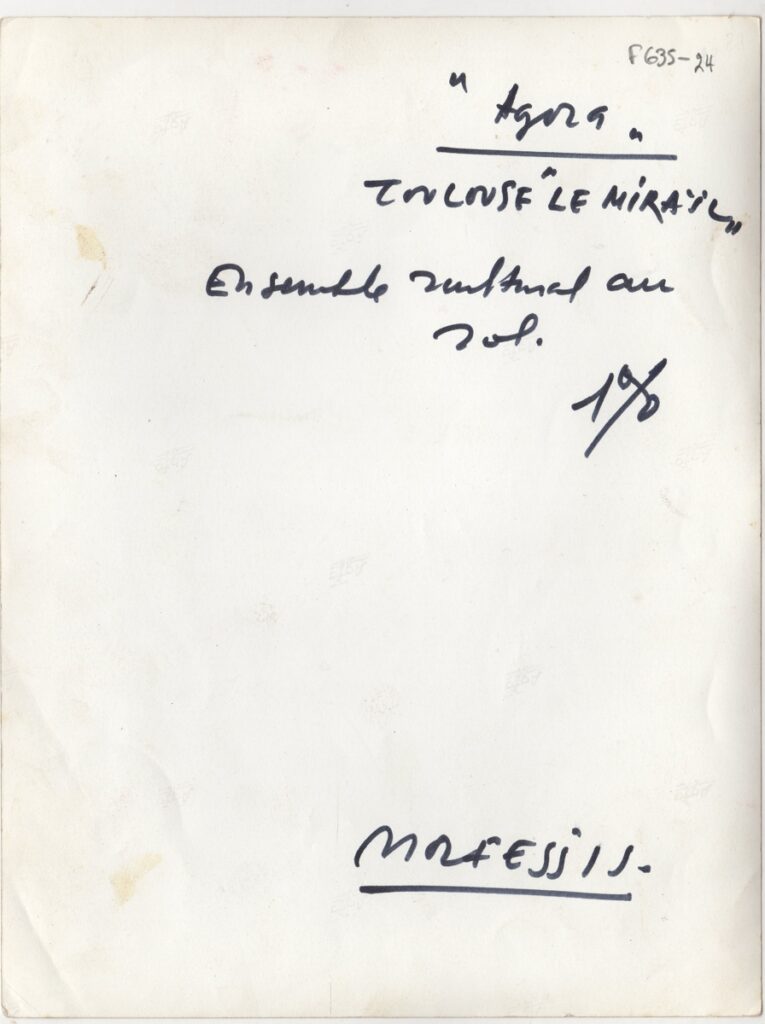 F635-24
"Agora"
TOULOUSE "LE MIRAIL"
Ensemble sculptural au
sol.
1%
MORFESSIS.